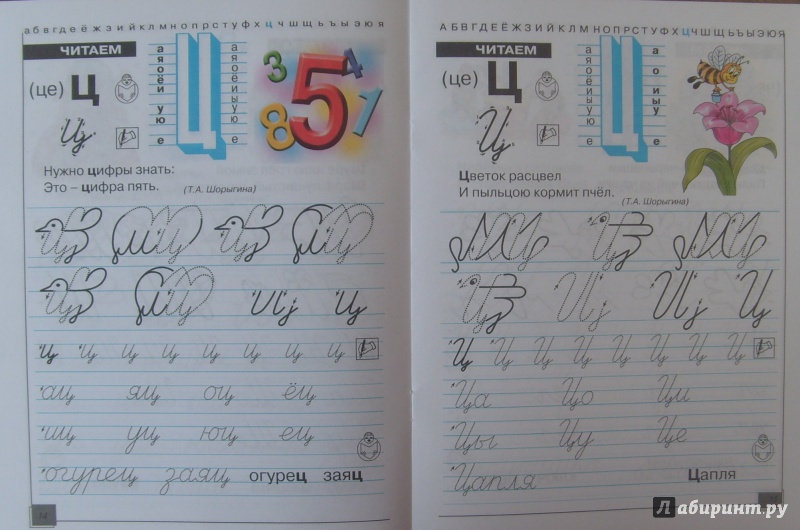 абвгдеёжзийклмнопрстуфхцчшщьъыэюя
ЧИТАЕМ
(це) Ц
Ц
а я о ё и ую е
Ц
а я о ё и ы у ю е
3 4 5 8 1
Нужно цифры знать:
Это – цифра пять.
(Т.А. Шорыгина)
ц ц ц ц
ц ц ц ц
ц ц ц ц ц ц ц ц
ац яц оц ёц
иц уц юц ец
огурец заяц огурец заяц
АБВГДЕЁЖЗИЙКЛМНОПРСТУФХЦЧШЩЬЪЫЭЮЯ
ЧИТАЕМ
(це) Ц
Ц
Ц
а о иы у е
Цветок расцвел
И пыльцою кормит пчёл.
(Т.А. Шорыгина)
Ц Ц Ц
Ц Ц Ц Ц
Ц Ц Ц Ц Ц Ц Ц Ц
Ца Цо Ци
Цы Цу Це
Цапля Цапля
Лабиринт.ру